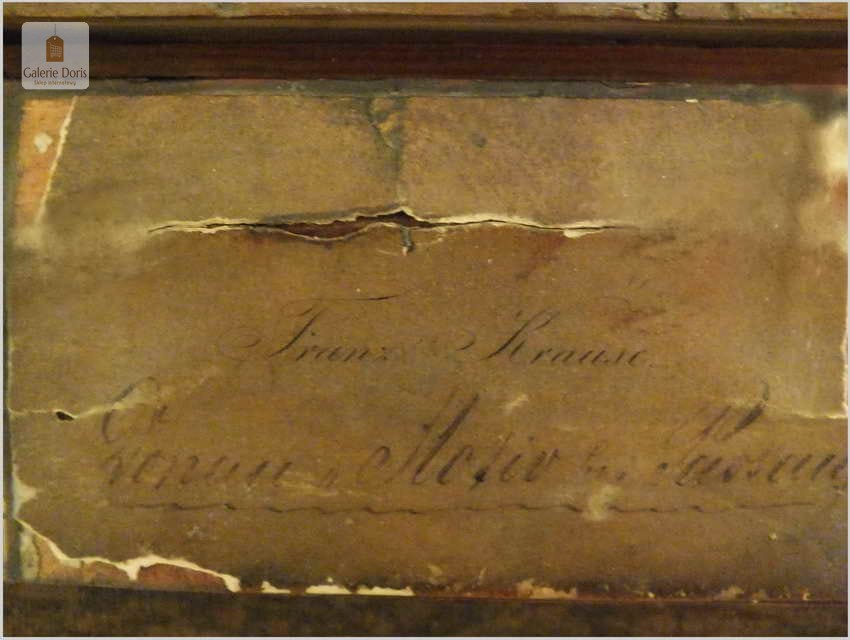 Galerie Doris
Franz Krause
Motiv bei Passau